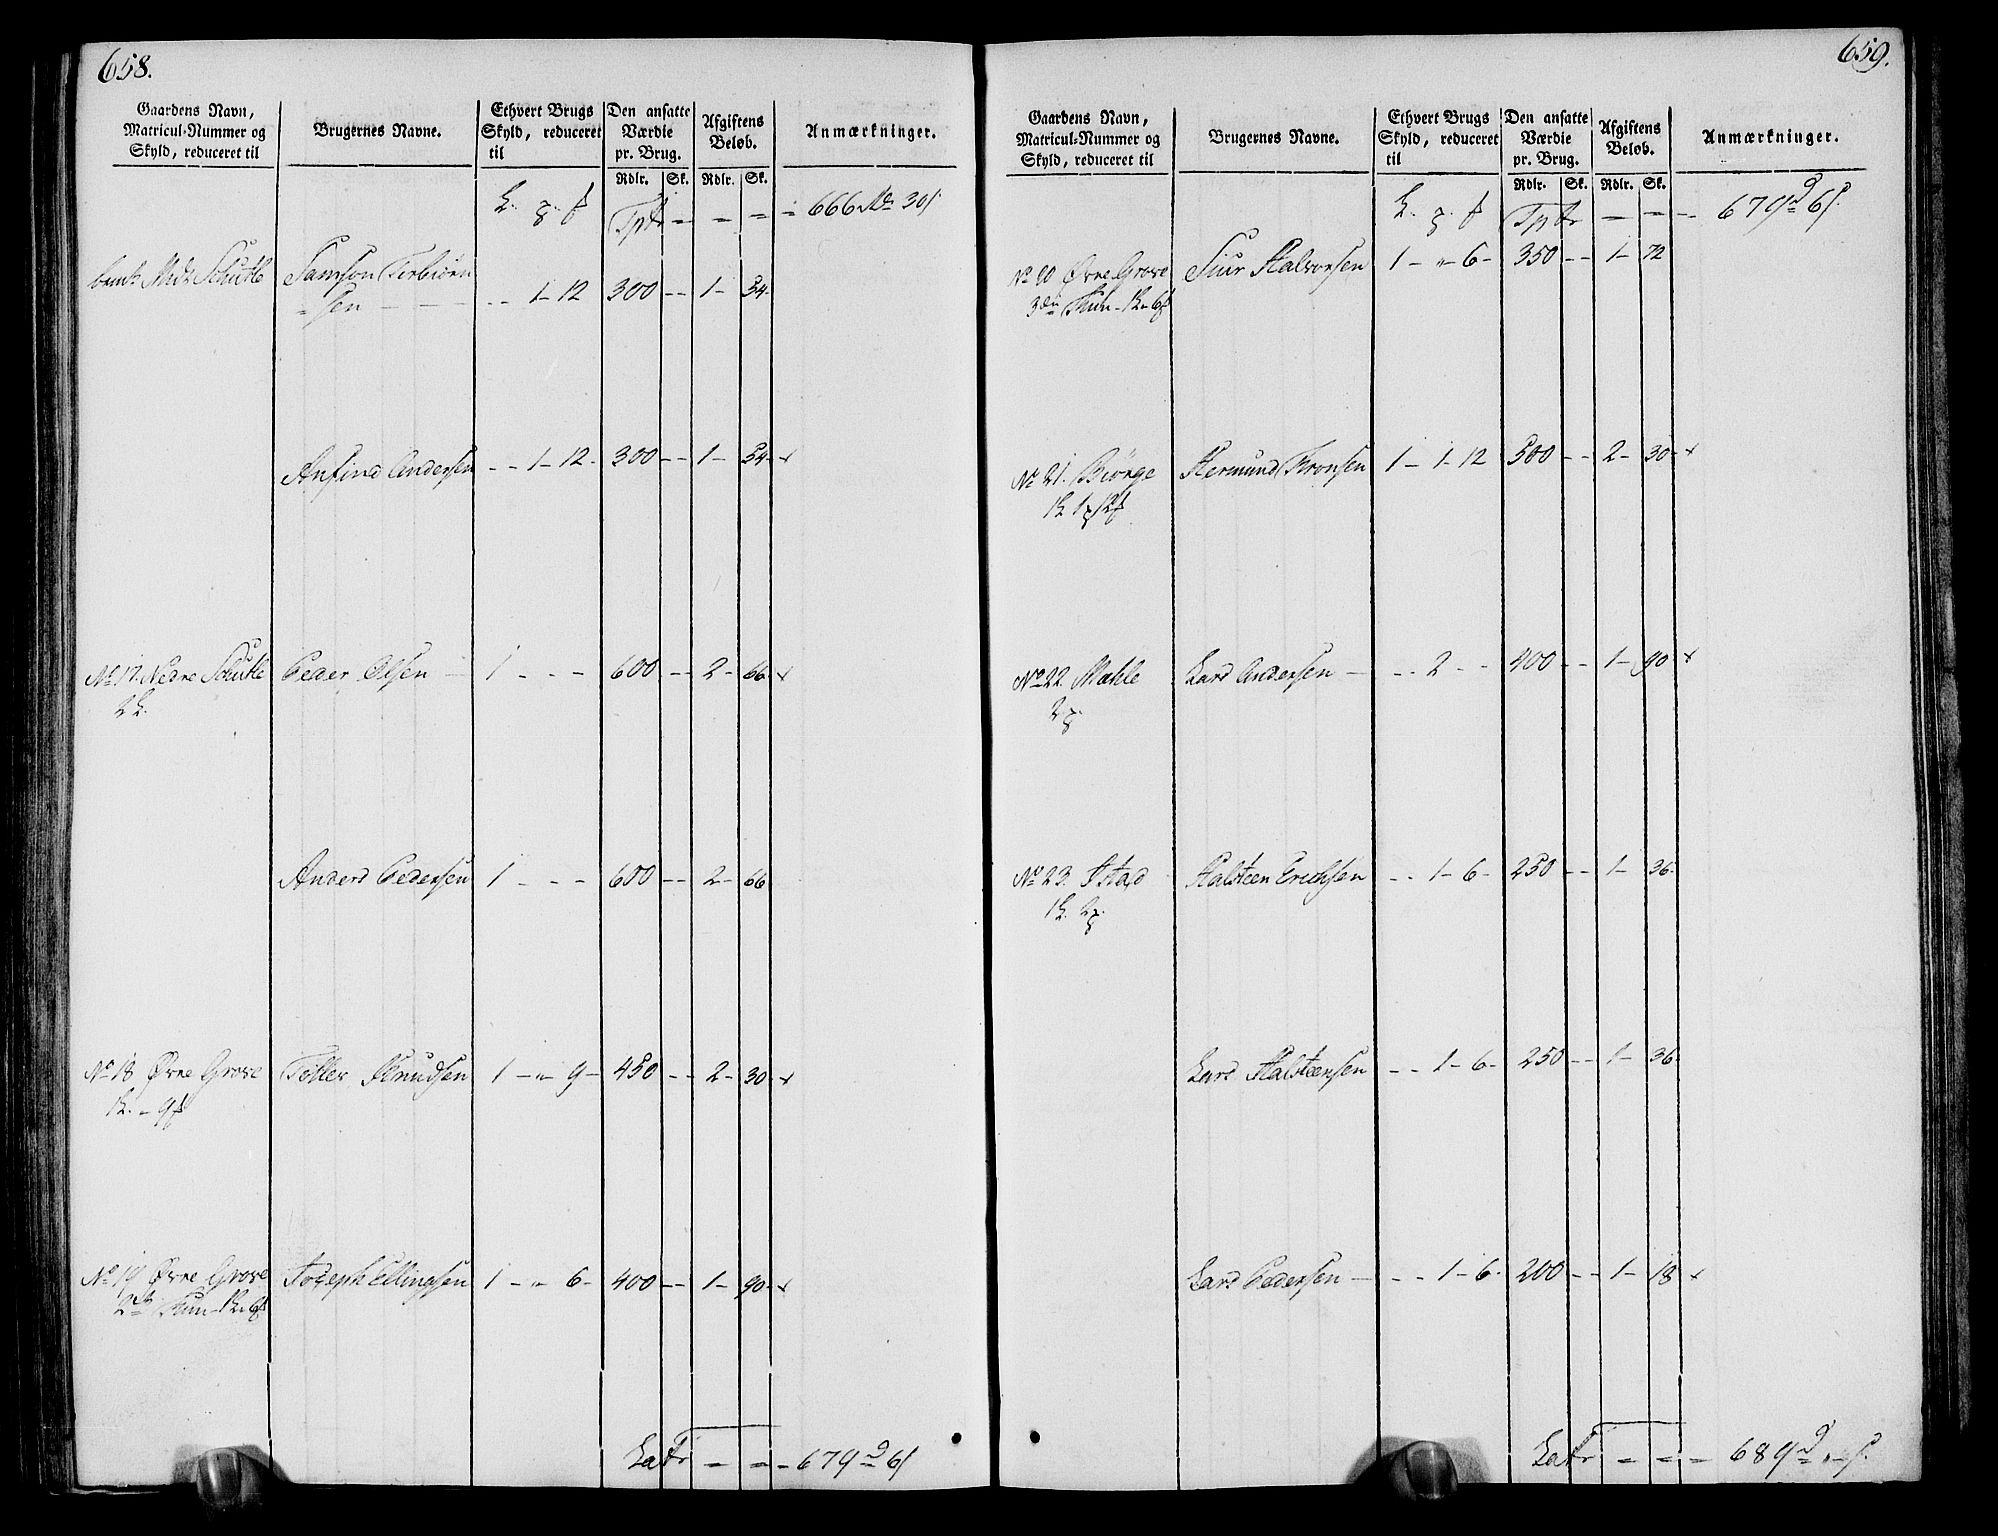 658.
Gaardens Navn, Matricul-Nummer og Skyld, reduceret til
Brugernes Navne.
Ethvert Brugs Skyld, reduceret til
Den ansatte Værdie pr. Brug.
Afgiftens Beløb.
Anmærkninger.
Rdlr. Sk. Rdlr. Sk.
Tptr — — — 666 30
Schutle Samson Torbiörn
sen - - 1 - 12 300 - - 1 - 54
Anfind Andersen - - 1 - 12 - 300 - - 1 - 54 - x
No 17. Nedre Schutle Peder Olsen 1 - - - 600 - - 2 - 66 x
2
Anders Pedersen 1 - - - 600 - - 2 - 66
No 18 Øvre Grove Knudsen 1 - " 9 - 450 - - 2 - 30 - x
1 - 9
No 19 Øvre Grove Joseph Ellingsen 1 - " 6 - 400 - - 1 - 90 - x
Latr — — — 679 6
659.
Gaardens Navn, Matricul-Nummer og Skyld, reduceret til
Brugernes Navne.
Ethvert Brugs Skyld, reduceret til
Den ansatte Værdie pr. Brug.
Afgiftens Beløb.
Anmærkninger.
Rdlr. Sk. Rdlr. Sk.
Tptr — — — 679 6
No 20 Øvre Grove Siur Halvorsen 1 - " 6 - 350 - - 1 - 72
No 21. Biörge Hermund 1 - 1 - 12 500 - - 2 - 30 - x
1 1 12
No 22. Mæhle Lars Andersen — - - 2 - - 400 - - 1 - 90 x
2
No 23. Istad Halsteen Erichsen - - 1 - 6 - 250 - - 1 - 36
1 2
Lars Halsteensen - - 1 - 6 - 250 - - 1 - 36
Lars Pedersen — - - 1 - 6 - 200 - - 1 - 18 x
Latr — — — 689